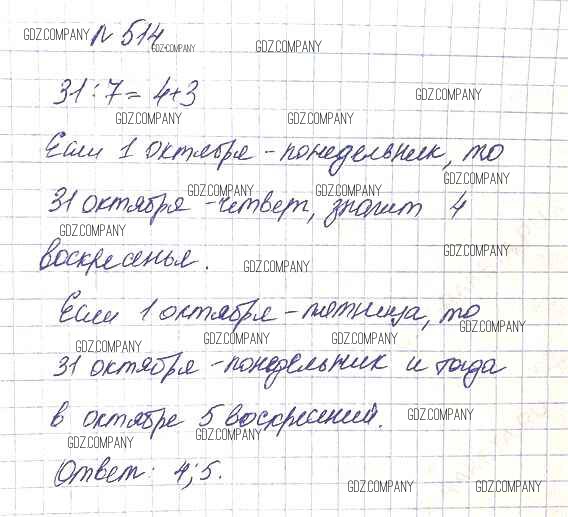 GDZ.COMPANY № 514 GDZ.COMPANY GDZ.COMPANY
31 : 7 = 4+3 GDZ.COMPANY
GDZ.COMPANY GDZ.COMPANY
Если 1 октября - понедельник, то
GDZ.COMPANY GDZ.COMPANY GDZ.COMPANY
31 октября - четверг, значит 4
GDZ.COMPANY GDZ.COMPANY
воскресенья. GDZ.COMPANY
Если 1 октября - пятница, то
GDZ.COMPANY GDZ.COMPANY GDZ.COMPANY GDZ.COMPANY
31 октября - понедельник и тогда
в октябре 5 воскресений. GDZ.COMPANY
GDZ.COMPANY GDZ.COMPANY
Ответ: 4; 5.
GDZ.COMPANY GDZ.COMPANY